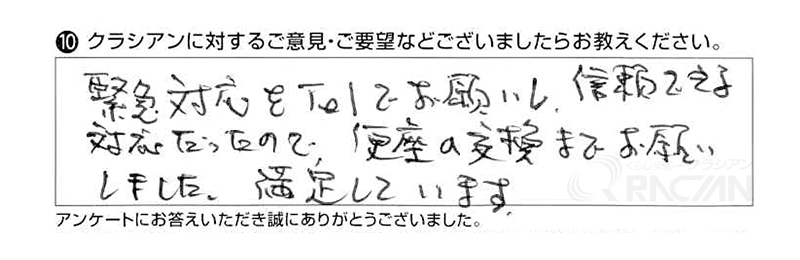 ❿ クラシアンに対するご意見・ご要望などございましたらお教えください。
緊急対応をTelでお願いし、信頼できる
対応だったので、便座の交換までお願い
しました。満足しています。
くらしあんしんクラシアン
QRACIAN
アンケートにお答えいただき誠にありがとうございました。